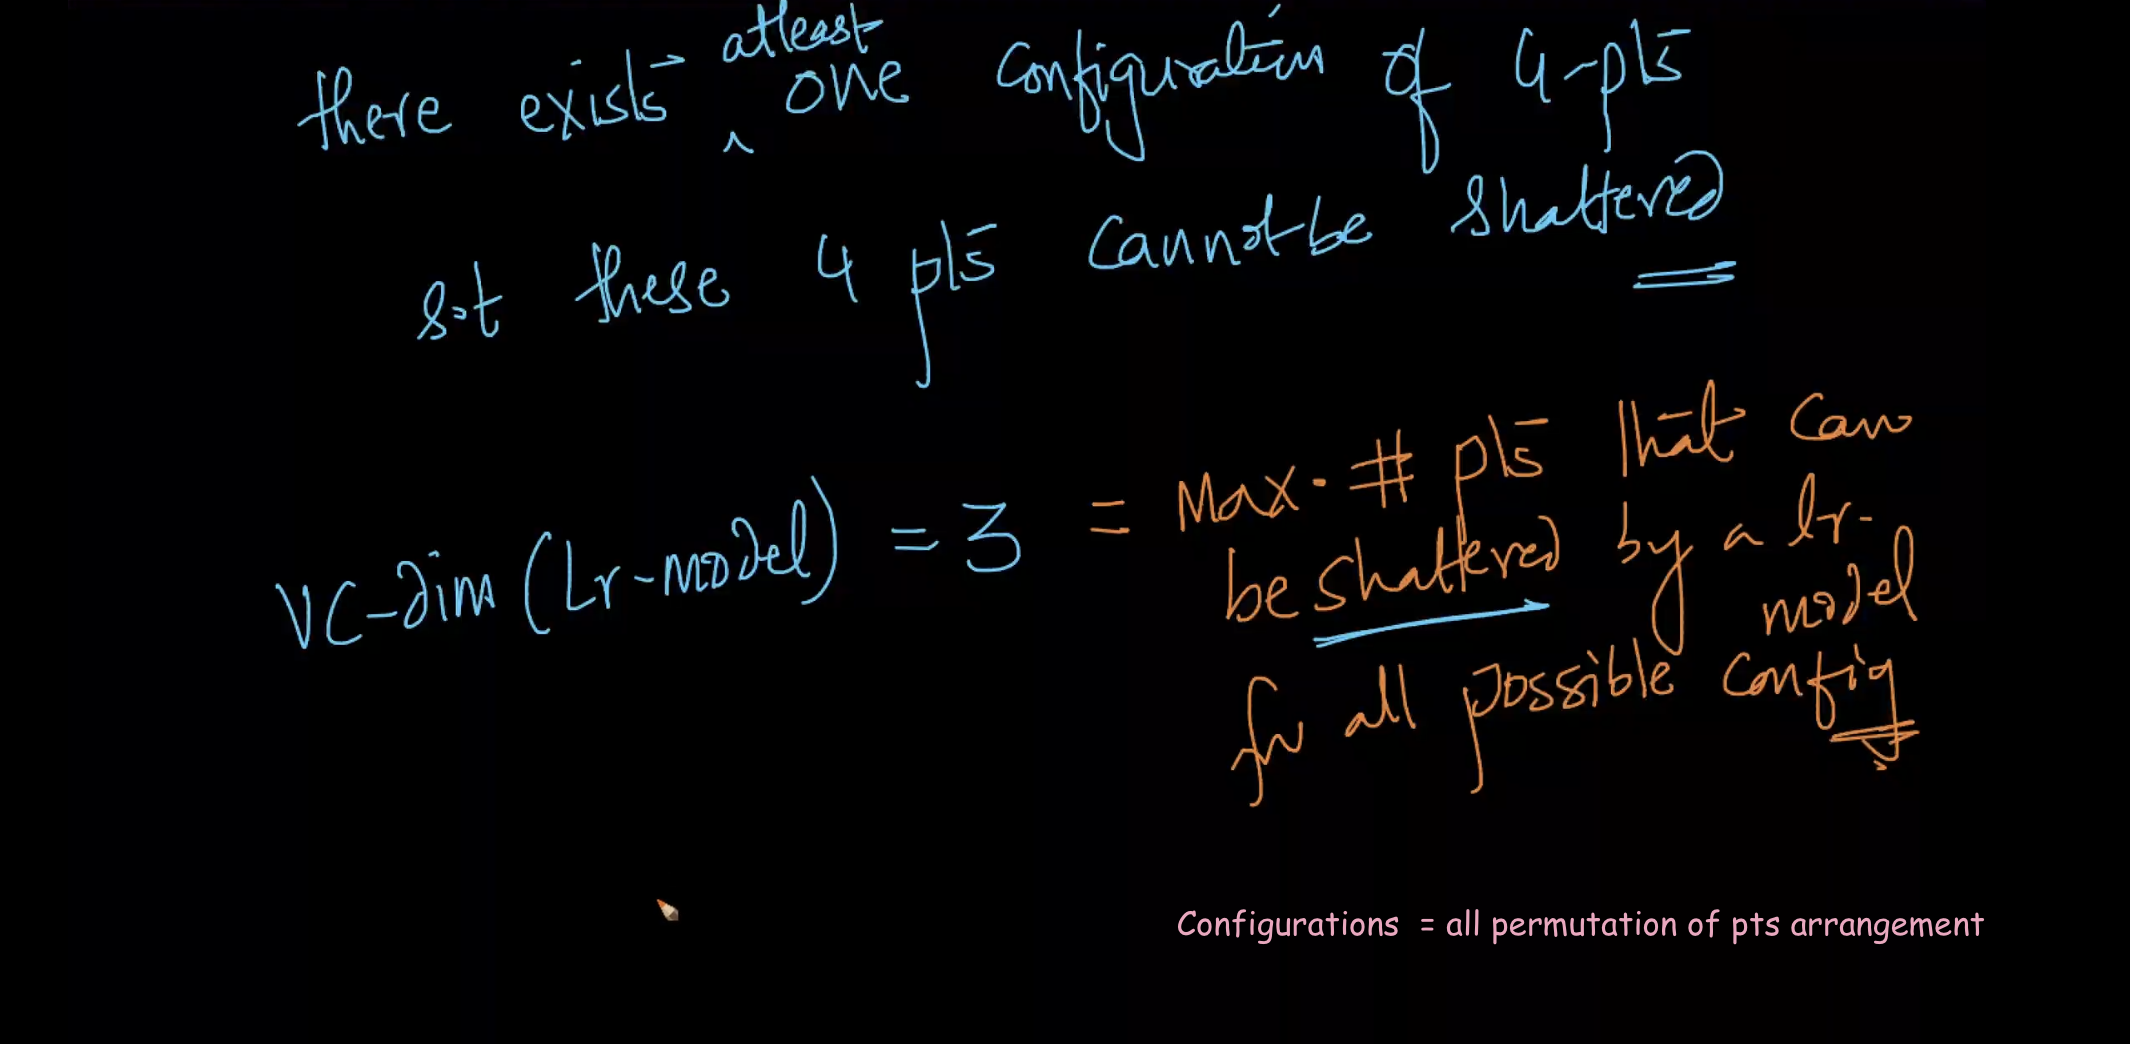 there exists atleast one configuration of 4-pts
s.t these 4 pts cannot be shattered
VC-dim (Lr-model) = 3 = Max. # pts that can
be shattered by a lr-
model
for all possible config
Configurations = all permutation of pts arrangement